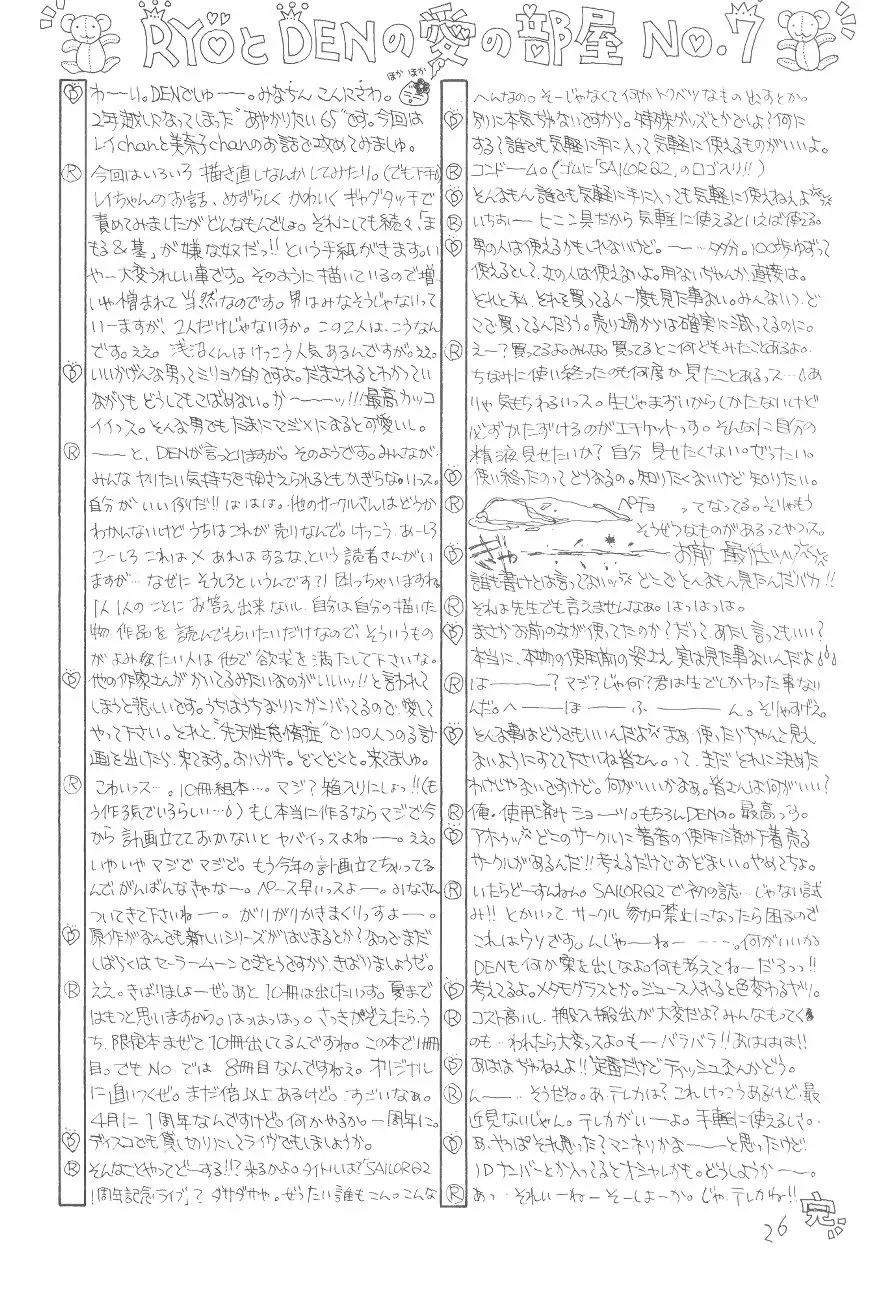 RYOとDENの愛の部屋 NO.7
ほか ほか
D わーい。DENでしゅー。みなちん こんにさわ。
2年越しになってしまった"あやかりたい65"です。今回は
レイchanと美奈子chanのお話で攻めてみましゅ。
R 今回はいろいろ 描き直しなんかしてみたり。(でも下手)
レイちゃんのお話、めずらしく かわいく ギャグタッチで
責めてみましたが どんなもんでしょ。それにしても続々、「ま
もる&墓」が嫌な奴だっ!! という手紙がきます。い
やー大変うれしい事です。そのように描いているので増、
いや憎まれて当然なのです。男はみなそうじゃないって
いーますが、2人だけじゃないすか。この2人は、こうなん
です。ええ。浅沼くんはけっこう人気あるんですが。ええ。
D いいかげんな男ってミリョク的ですよ。だまされるとわかってい
ながらも どうしてもこばめない。か〜〜〜ッ!!!最高カッコ
イイっス。そんな男でもたまにマジメになると可愛いし。
R 〜〜と、DENが言っとりますが。そのようです。みんなが、
みんなヤリたい気持ちを押さえられるともかぎらないっス。
自分がいい例だ!! ははは。他のサークルさんはどうか
わかんないけど うちはこれが売りなんで。けっこう、あーしろ
こーしろ これは× あれはするな、という読者さんがい
ますが… なぜに そうしろというんです?! 困っちゃいますね。
1人1人のことに お答え出来ないし、自分は自分の描いた
物、作品を 読んでもらいたいだけなので、そういうもの
がよみたい人は他で欲求を満たして下さいな。
D 他の作家さんがかいてるみたいなのがいいッ!!と言われて
しまうと悲しいです。うちはうちなりにガンバってるので、愛して
やって下さい。それと、"先天性怠惰症"で100人つのる計
画を出したら、来てます。おハガキ。どくどくと。来てましゅ。
R こわいっス…。10冊組本…。マジ? 箱入りにしょっ!!(も
う作る気でいるらしい…) もし本当に作るならマジで今
から計画立てておかないと ヤバイっスよねー。ええ。
いやいやマジでマジで。もう今年の計画立てちゃってる
んで がんばんなきゃなー。ペース早いっスよー。みなさん
ついてきて下さいねー。がりがりかきまくりっすよー。
D 原作がなんでも新しいシリーズがはじまるとか?なのでまだ
しばらくはセーラームーンできそうですから、きばりましょうぜ。
R ええ。きばりましょーぜ。あと10冊は出したいっす。夏まで
はもつと思いますから。はっはっはっ。さっきかぞえたら、う
ち、限定本まぜて10冊出してるんですね。この本で11冊
目。でもNo.では 8冊目なんですねぇ。オリジナル
に追いつくぜ。まだ倍以上あるけど。すごいなぁ。
4月に1周年なんですけど。何かやるか。一周年に。
D ディスコでも貸し切りにしてライヴでもしましょうか。
R そんなことやってどーする!!? 来るかよ。タイトルは?「SAILORQ2
1周年記念ライブ」? ダサダサや。ぜったい誰もこん。こんな
へんなの。そーじゃなくて何かトクベツなもの出すとか。
D 別に本気ぢゃないですから。特殊グッズとかでしょ?何に
する?誰でも気軽に手に入って気軽に使えるものがいいよ。
R コンドーム。(ゴムに「SAILORQ2」のロゴ入り!!)
D そんなもん誰でも気軽に手に入っても気軽に使えねぇよ
R いちおー ヒニン具だから 気軽に使えるといえば使える。
D 男の人は使えるかもしれないけど。ー…多分。100歩ゆずって
使えるとして、女の人は使えないよ。用ないぢゃんか、直接は。
それと私、それを買ってる人一度も見た事ない。みんないつ、ど
こで買ってるんだろう。売り場からは確実に減ってるのに。
R えー?買ってるよ。みんな。買ってるとこ何どもみたことあるよ。
ちなみに使い終ったのも何度か見たことあるっス…あ
りゃ気もちわるいっス。生じゃまずいからしかたないけど
必ずかたずけるのがエチケットっす。そんなに自分の
精液見せたいか?自分 見せたくない。ぜったい。
D 使い終ったのってどうなるの。知りたくないけど知りたい。
R ペチョ ってなってる。そりゃもう
そうぜつなものがあるってやつっス。
D ぎゃ お前 最低ッッ
誰も書けとは言ってないッ どこで そんなもん見たんだバカ!!
R それは先生でも言えませんなぁ。はっはっは。
D まさかお前の女が使ってたのか?だって、あたし言ってもいい?
本当に、本物の使用前の姿さえ、実は見た事ないんだよ
R は〜〜〜? マジ?じゃ何?君は生でしかヤった事ない
んだ。へーーほーーふーーん。そりゃすげえ。
D そんな事はどうでもいいんだよ まぁ使ったらちゃんと見え
ないようにすてて下さいね皆さん。って、まだ それに決めた
わけじゃないですけど。何がいいかなぁ。皆さんは何がいい?
R 俺、使用済みショーツ。もちろんDENの。最高っす。
D アホゥッ どこのサークルに著者の使用済み下着売る
サークルがあるんだ!! 考えるだけでおどましい。やめてちょ。
R いたらどーすんねん。SAILORQ2で初の誌…じゃない試
み!! とかいって、サークル 参加禁止になったら困るので
これはウソです。んじゃーねー ー…。何がいいかな
DENも何か案を出しなよ。何も考えてねーだろっっ!!
D 考えてるよ。メタモグラスとか。ジュース入れると色変わるヤツ。
R コスト高いし、搬入搬出が大変だよ?みんなもってく
のも…われたら大変っスよ。もーバラバラ!!あははは!!
D あははぢゃねえよ!! 定番だけどティッシュなんかどう。
R んー… そうだね。あ、テレカは? これけっこうあるけど、最
近見ないじゃん。テレカがいーよ。手軽に使えるしさ。
D あ、やっぱそれ思った? マンネリかなー〜〜と思ったけど。
IDナンバーとか入ってるとオシャレかも。どうしようか〜〜。
R あっ…それいーねー そーしよーか。じゃ、テレカね!!
完
26